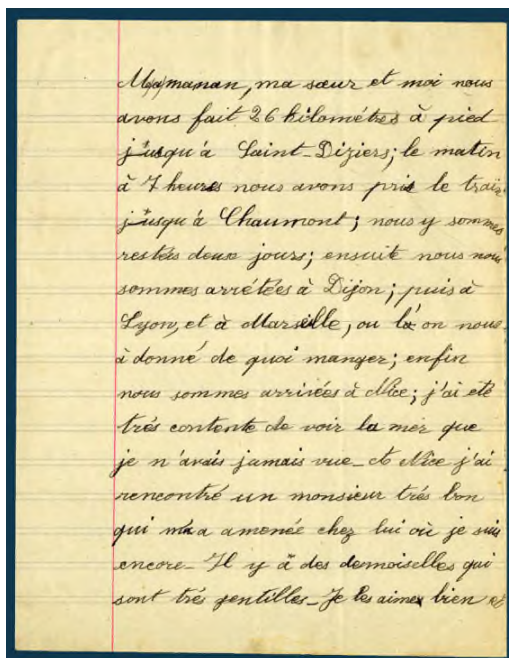 Ma maman, ma sœur et moi nous
avons fait 26 kilométres à pied
jusqu'à Saint-Diziers; le matin
à 7 heures nous avons pris le train
jusqu'à Chaumont; nous y sommes
restées deux jours; ensuite nous nous
sommes arrétées à Dijon; puis à
Lyon, et à Marseille, ou là on nous
à donné de quoi manger; enfin
nous sommes arrivées à Nice; j'ai été
trés contente de voir la mer que
je n'avais jamais vue_ A Nice j'ai
rencontré un monsieur trés bon
qui m'a amenée chez lui où je suis
encore_ Il y à des demoiselles qui
sont trés gentilles_ Je les aime bien et